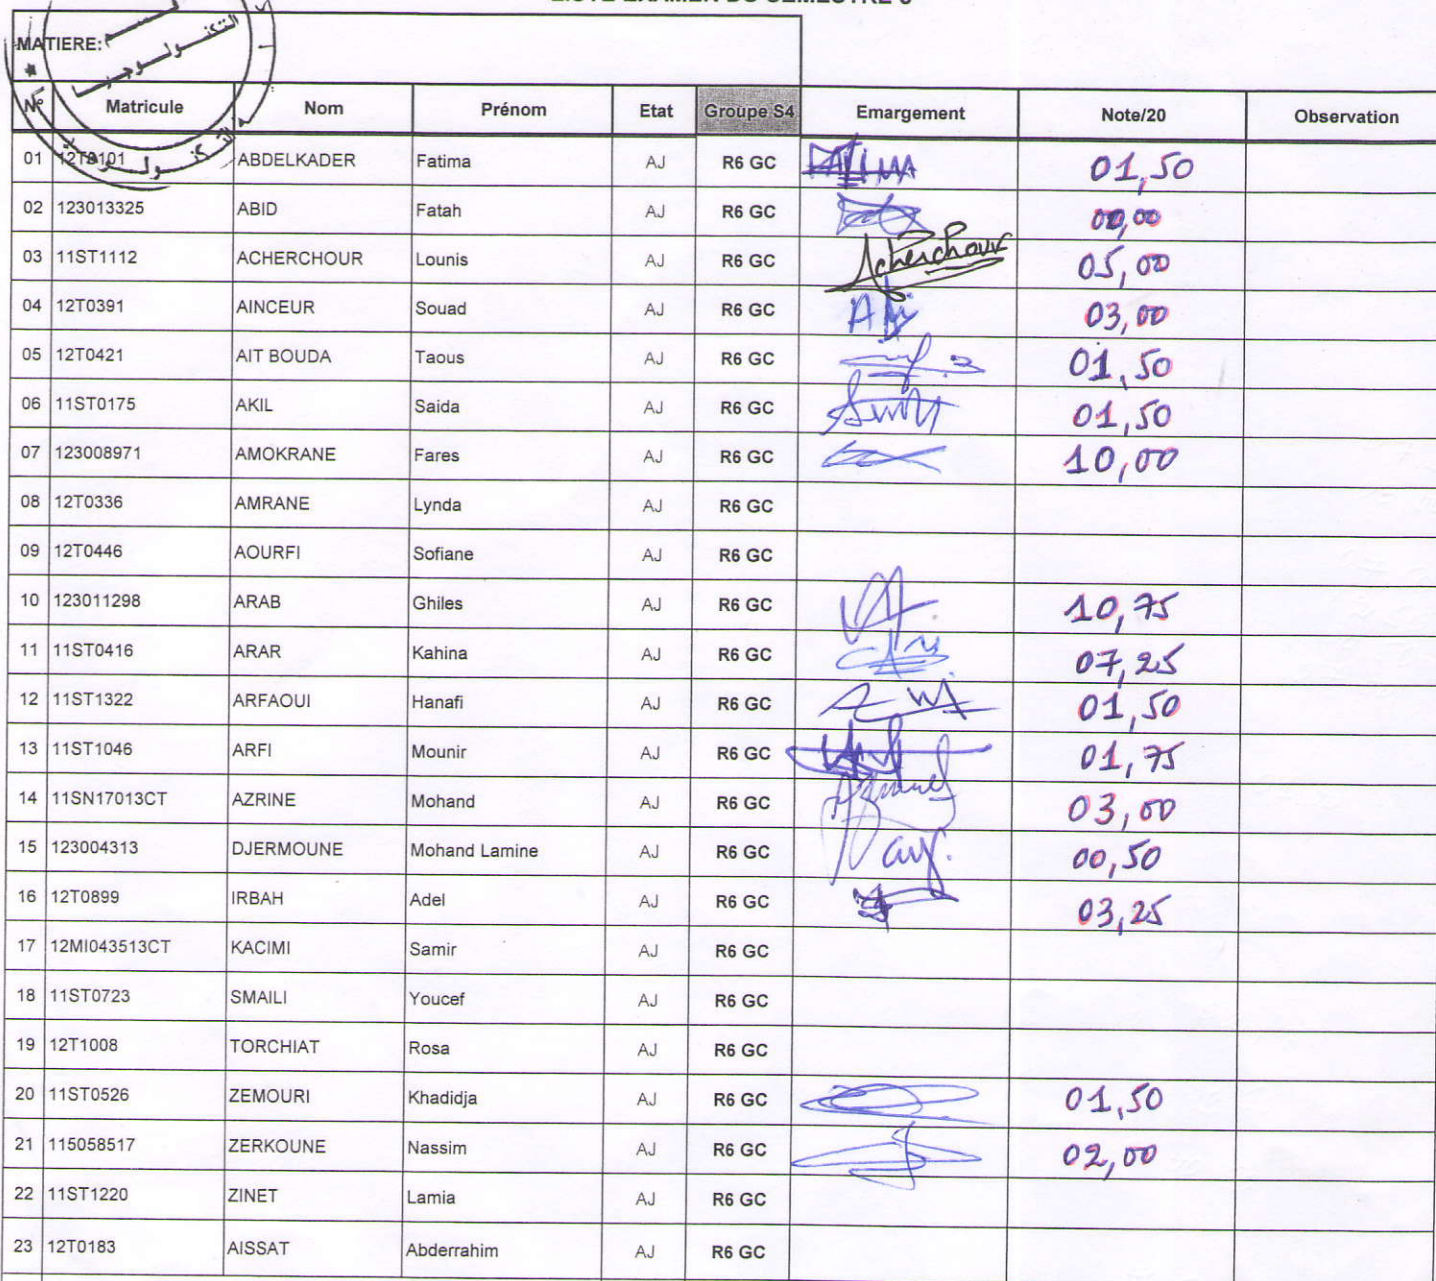 LISTE EXAMEN DU SEMESTRE
MATIERE:
التكنولوجيا
N° Matricule Nom Prénom Etat Groupe S4 Emargement Note/20 Observation
01 12T0101 ABDELKADER Fatima AJ R6 GC FATIMA 01,50
02 123013325 ABID Fatah AJ R6 GC 00,00
03 11ST1112 ACHERCHOUR Lounis AJ R6 GC Acherchour 05,00
04 12T0391 AINCEUR Souad AJ R6 GC 03,00
05 12T0421 AIT BOUDA Taous AJ R6 GC 01,50
06 11ST0175 AKIL Saida AJ R6 GC 01,50
07 123008971 AMOKRANE Fares AJ R6 GC 10,00
08 12T0336 AMRANE Lynda AJ R6 GC
09 12T0446 AOURFI Sofiane AJ R6 GC
10 123011298 ARAB Ghiles AJ R6 GC 10,75
11 11ST0416 ARAR Kahina AJ R6 GC 07,25
12 11ST1322 ARFAOUI Hanafi AJ R6 GC 01,50
13 11ST1046 ARFI Mounir AJ R6 GC 01,75
14 11SN17013CT AZRINE Mohand AJ R6 GC 03,00
15 123004313 DJERMOUNE Mohand Lamine AJ R6 GC 00,50
16 12T0899 IRBAH Adel AJ R6 GC 03,25
17 12MI043513CT KACIMI Samir AJ R6 GC
18 11ST0723 SMAILI Youcef AJ R6 GC
19 12T1008 TORCHIAT Rosa AJ R6 GC
20 11ST0526 ZEMOURI Khadidja AJ R6 GC 01,50
21 115058517 ZERKOUNE Nassim AJ R6 GC 02,00
22 11ST1220 ZINET Lamia AJ R6 GC
23 12T0183 AISSAT Abderrahim AJ R6 GC